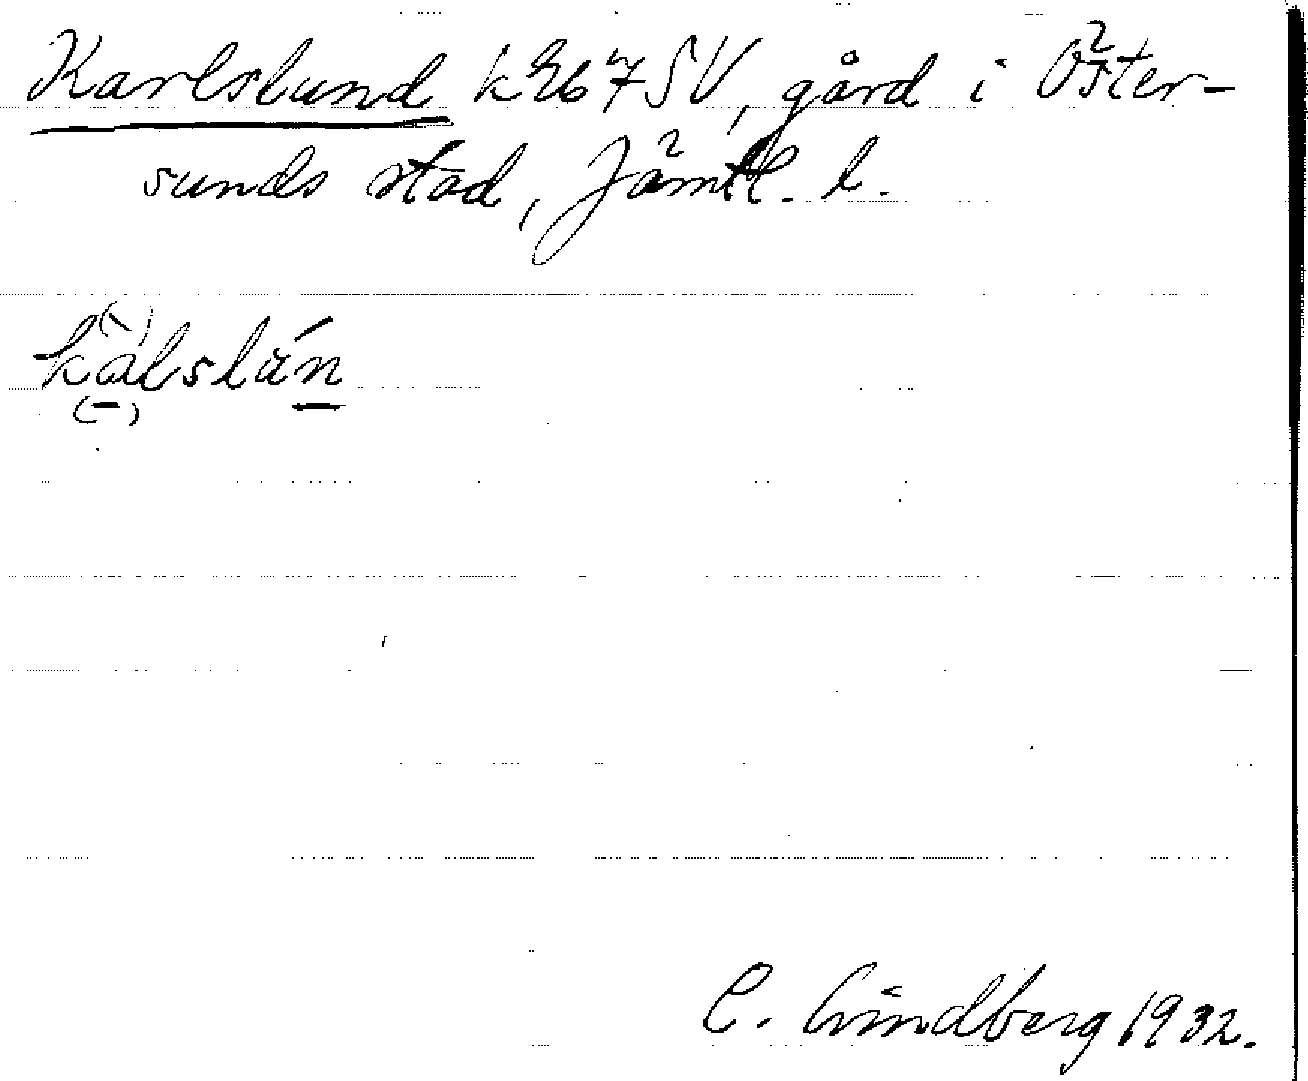 Karlslund k E67SV, gård i Öster-
sunds stad, Jämtl. l.
kalslun
C. Lindberg 1932.